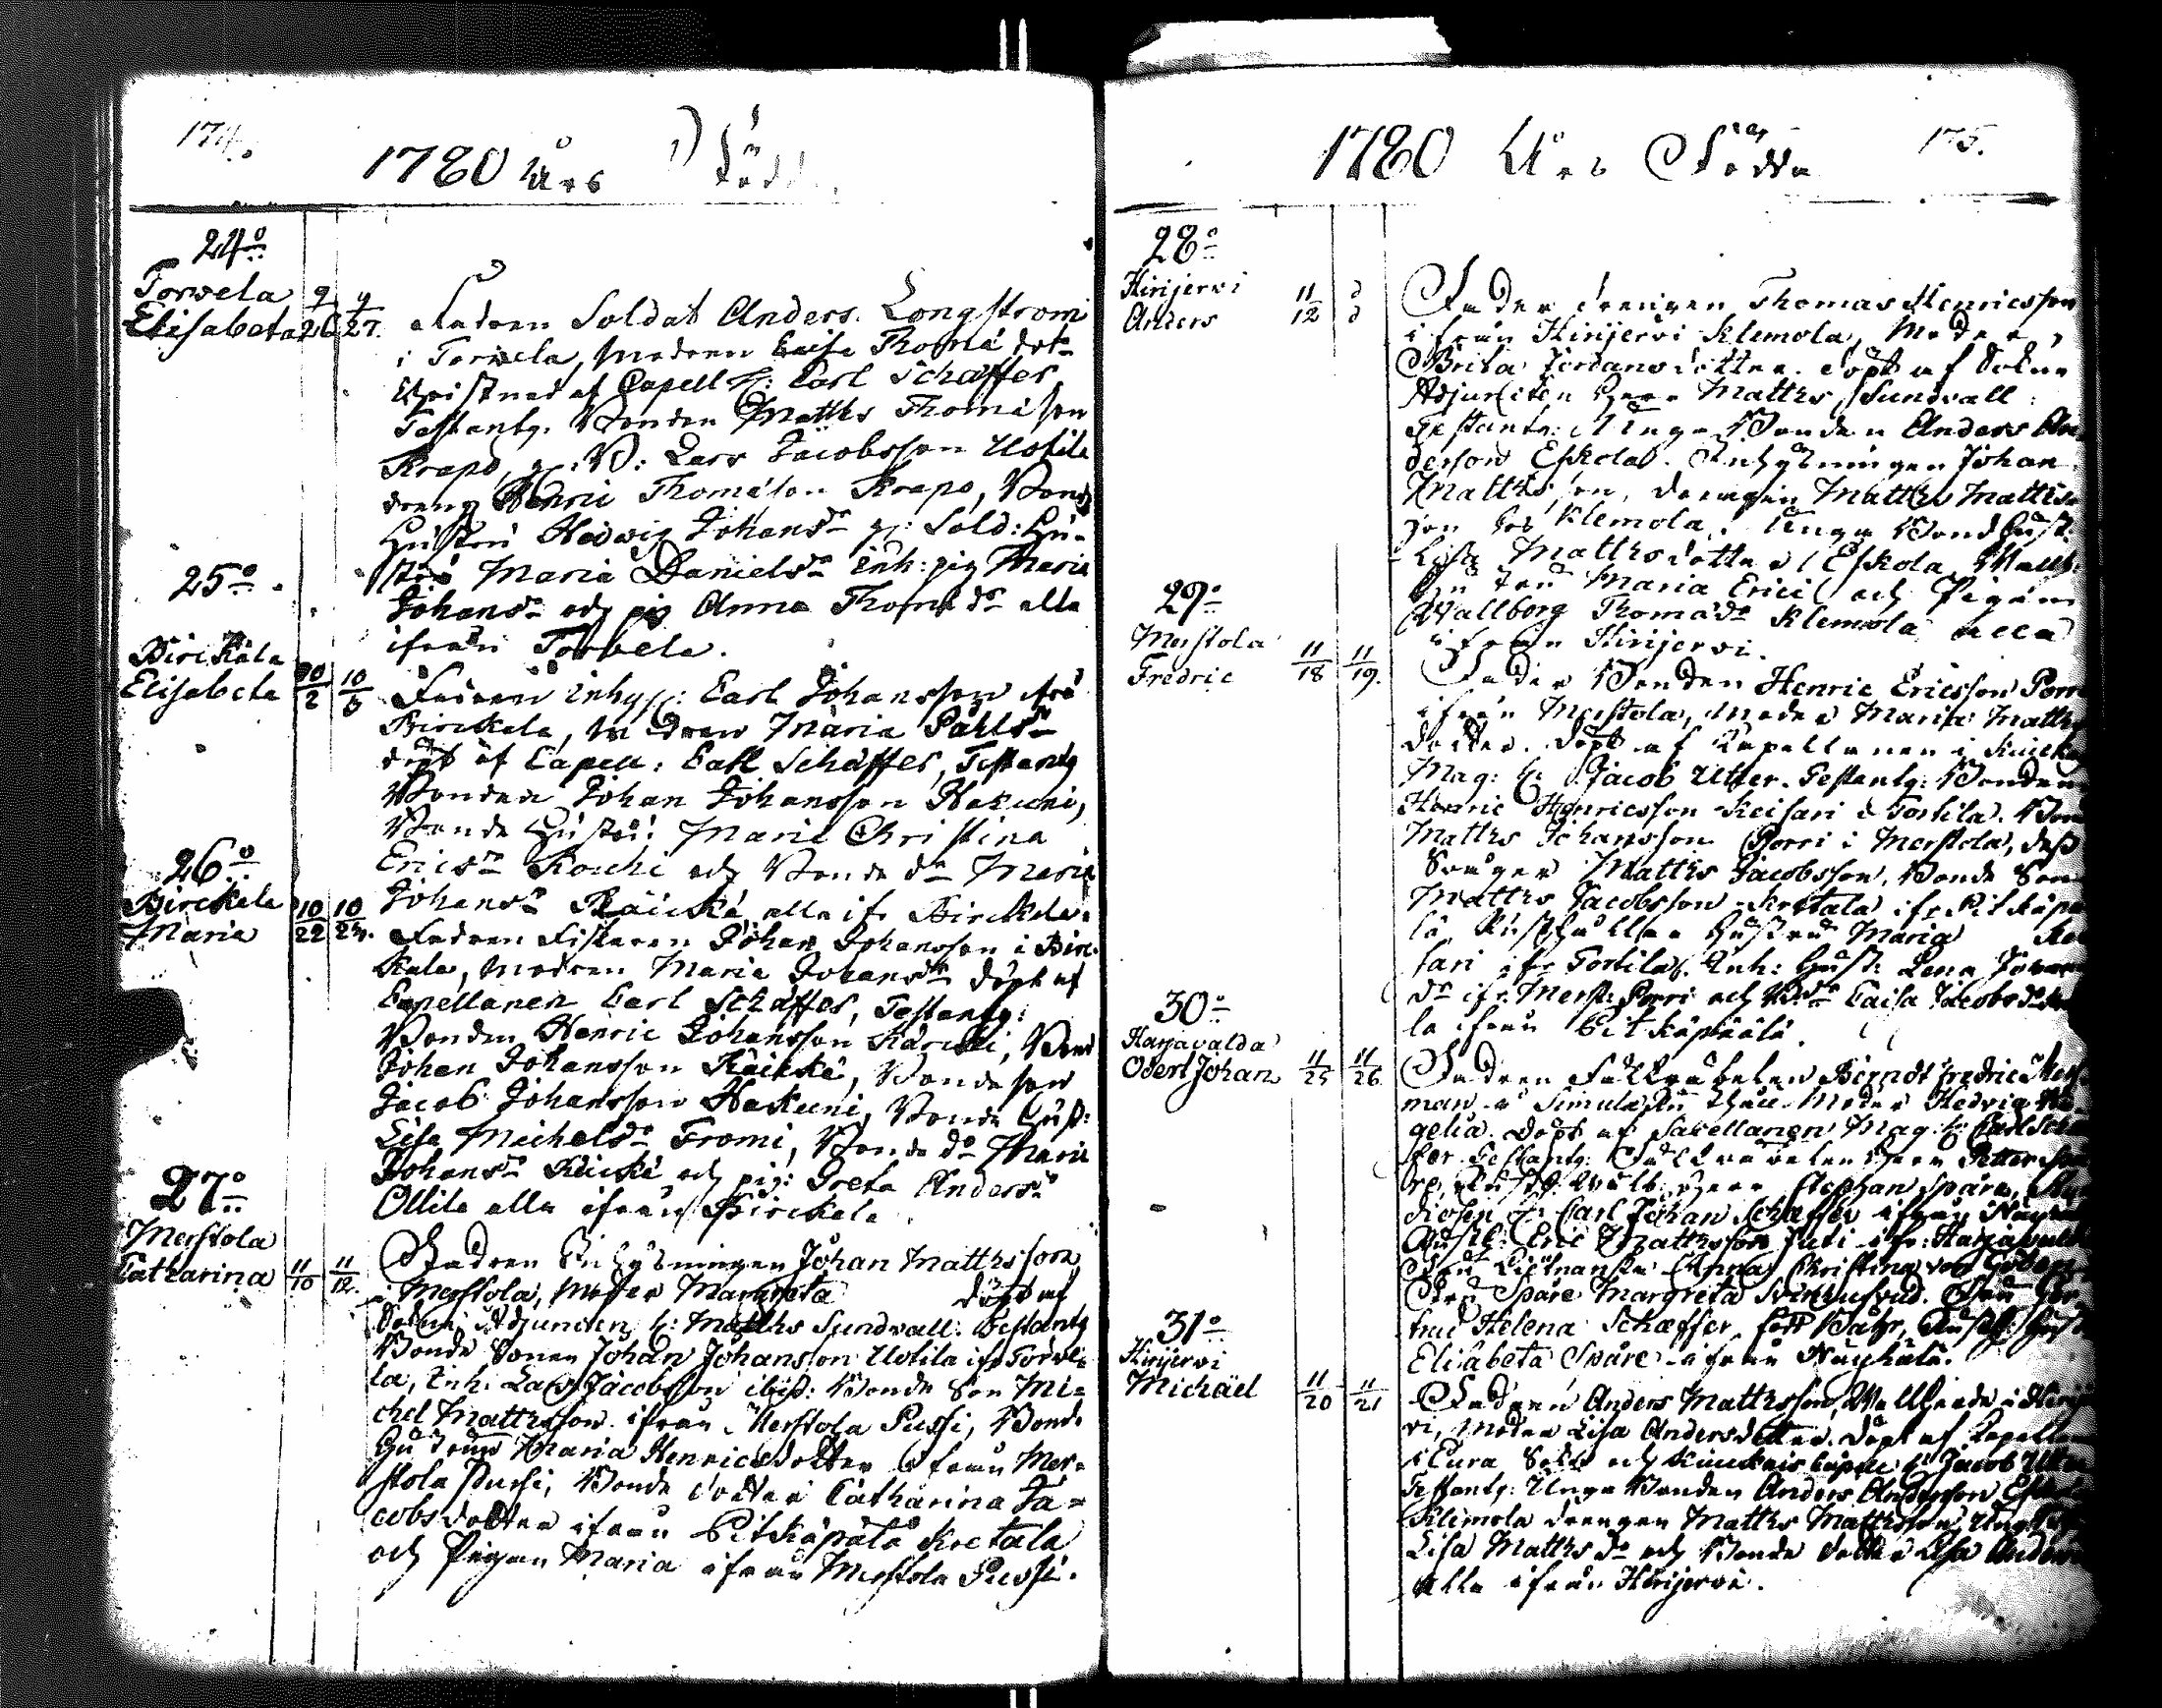 174.
1780 Års Födde
24o
Torvela
Elisabeta
9/26 9/27.
Fadren Soldat Anders Longstrom
i Torvela, modren Caisa Thomædotr
Christnad af Capell H: Carl Schæffer
Testantg. Bonden Matths Thomæson
Krapo, H: B: Lars Jacobsson Uotila
dreng Henric Thomæson Krapo, Bond
Hustru Hedwig Johansdr Sold: Hu-
stru Maria Danielsdr inh: pig Maria
Johansdr och pig Anna Thomædr alla
ifrån Torvela.
25o
Birckala
Elisabeta
10/2 10/5
Fadren inhys: Carl Johansson ifrå
Birckala, modren Maria Påhlsdr
döpt af Capell: Carl Schæffer, Testantg
Bonden Johan Johansson Hakuni,
Bonde Hustru Maria Christina
Ericsdr Kouhi och Bonde dr Maria
Johansdr Räicke, alla ifr Birckala.
26o
Birckala
Maria
10/22 10/24.
Fadren Fiskaren Johan Johansson i Bir-
kala, modren Maria Johansdr döpt af
Capellanen Carl Schæffer, Testantg:
Bonden Henric Johansson Karuki, Bond
Johan Johansson Räicke, Bondeson
Jacob Johansson Hakuni, Bonde Hust:
Lisa Michelsdr Fromi, Bonde dr Maria
Johansdr Räicke och pig: Greta Andersdr
Ollila alla ifrån Birckala
27o
Merstola
Catharina
11/10 11/12.
Fadren Inhysningen Johan Matthsson
i Merstola, Moder Margreta döpt af
Sockne Adjuncten H: Matths Sundvall. Testantg
Bonde Sonen Johan Johansson Uotila ifr Torve-
la, Inh: Lars Jacobsson ibid: Bonde Son Mi-
chel Matthsson ifrån Merstola Pussi, Bonde
Hustrun Maria Henricsdotter ifrån Mer-
stola Pussi, Bonde dotter Catharina Ja-
cobsdotter ifrån Pitkäpälä Kretala
och Pigan Maria ifrån Merstola Pussi.
1780 Års Födda
175.
28o
Hirijervi
Anders
11/12 d d
Fader drengen Thomas Henricsson
ifrån Hirijervi Klemola, Moder
Brita Jordansdotter. döpt af Sokne
Adjuncten Herr Matths Sundvall
Testante: Unge Bonden Anders An
derson Eskola. Inhysningen Johan
Matthsson, drengen Matths Matths
son från Klemola. Unga Bond Hust:
Lisa Matthsdotter Eskola, Wallh:
Hustru Maria Erici och Pigan
Wallborg Thomædr Klemola alla
ifrån Hirijervi.
29o
Merstola
Fredric
11/18 11/19.
Fader Bonden Henric Ericsson Porri
ifrån Merstola, Moder Maria Matths
dotter. Döpt af Capellanen i Kiucka
Mag: H: Jacob Utter. Testantg: Bonden
Henric Henricsson Keisari i Torttila. Bon
Matths Johansson Porri i Merstola, dess
Swåger Matths Jacobsson, Bonde Son
Matths Jacobsson Kretala ifr Pitkäpä
lä Rusthullar Hustrun Maria Kei
sari ifr Torttila. Inh: Hust: Lena Johans
dr ifr: Merst: Porri och Bdr Caisa Jacobsdr
la ifrån Pitkäpäälä.
30o
Harjavalda
Odert Johan
11/25 11/26.
Fadren Fältväbelen Berndt Fredric
man å Simula Rusthåll Moder Hedvig
gelia. Döpt af Capellanen Mag: H: Carl Schæ
ffer. Testantg: Fältväbelen Herr Petter
Herr Stephan Spåre, Stu
diosen H: Carl Johan Schæffer ifrån Nayhälä
Rusth: Eric Matthsson Juti ifr: Harjavalda
Fru Lieutnantska Anna Christina von
Fru Spåre Margreta Svinhufvud. Fru Ger
trud Helena Schæffer född Båhr, Rusth: Hustr
Elisabeta Spåre ifrån Nayhälä.
31o
Hirijervi
Michäel
11/20 11/21
Fadren Anders Matthsson, Wallherde i Hirijer
vi, Moder Lisa Andersdotter. Döpt af Capellan
i Eura Sokn och Kiuckais Capell H: Jacob Utter
Testantg: Unge Bonden Anders Andersson Eskola
Klemola drengen Matths Matthsson, Unga
Lisa Matths dr och Bonde dotter Lisa Anders
alla ifrån Hirijervi.